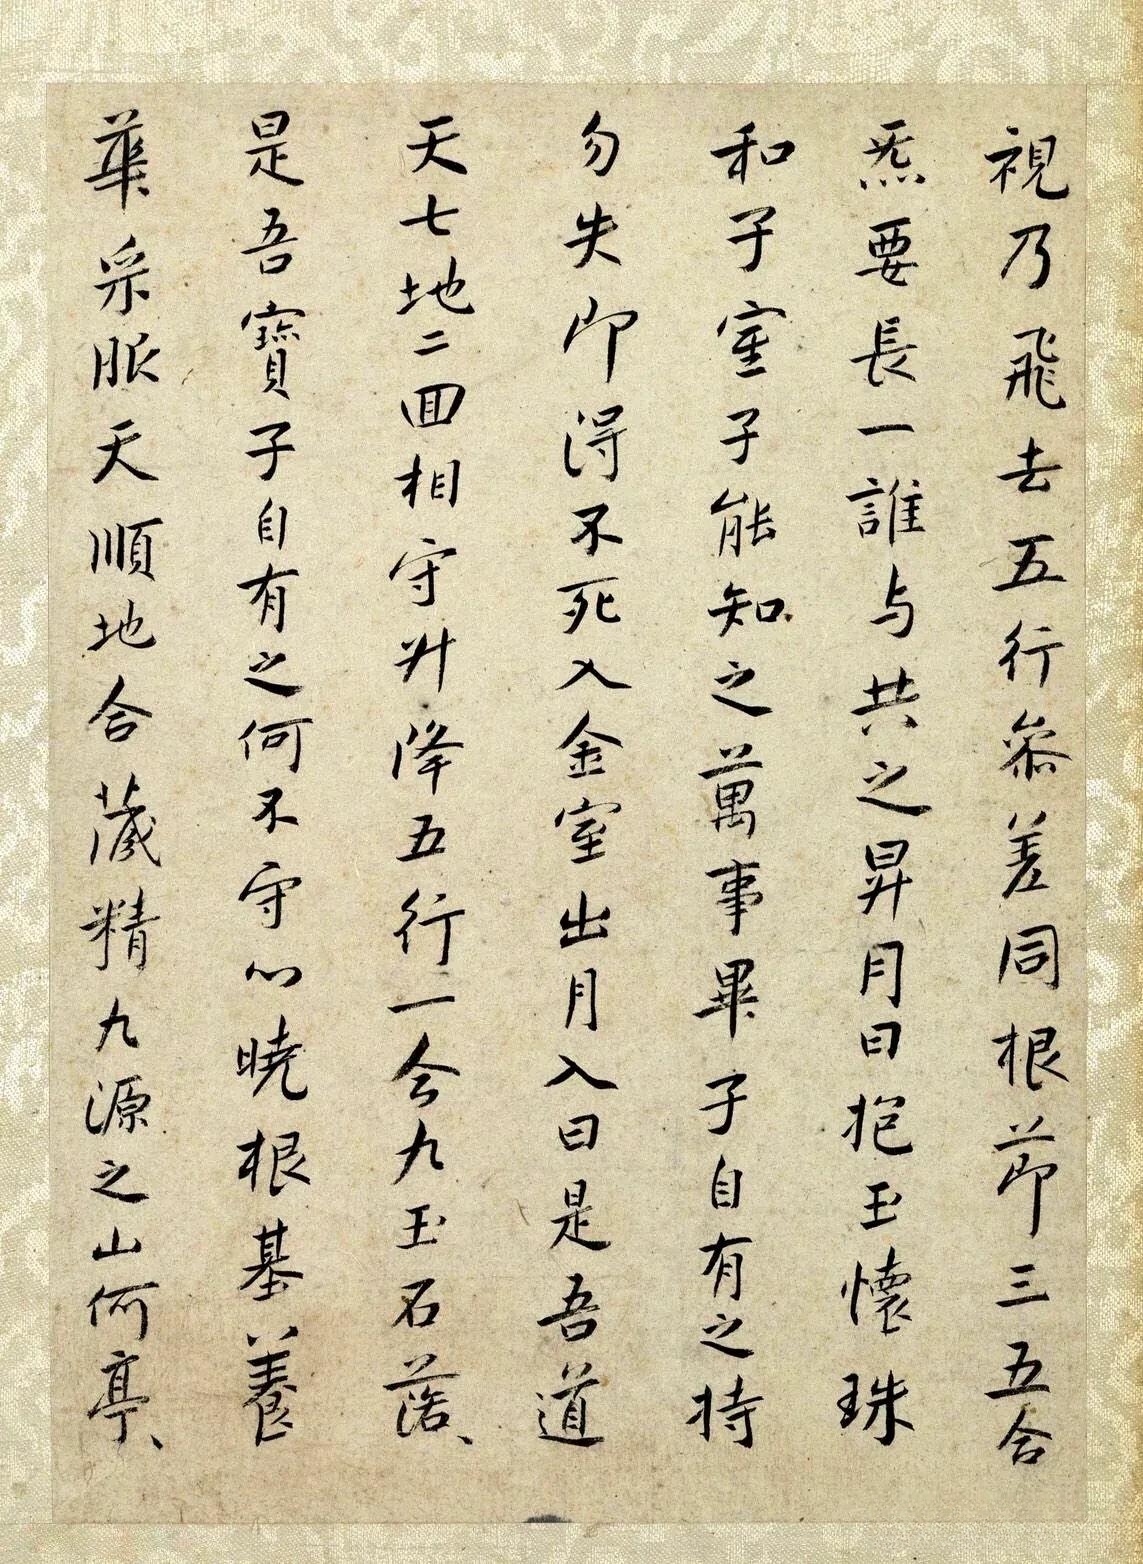 視乃飛去五行參差同根莭三五合
炁要長一誰与共之昇月日抱玉懷珠
和子室子能知之萬事畢子自有之持
勿失即得不死入金室出月入日是吾道
天七地二回相守升降五行一合九玉石落落
是吾寶子自有之何不守心曉根基養
華采服天順地合藏精九源之山何亭亭